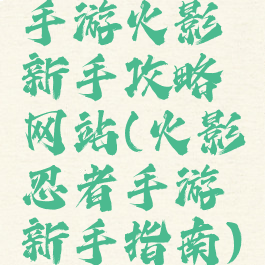 手游火影
新手攻略
网站(火影
忍者手游
新手指南)